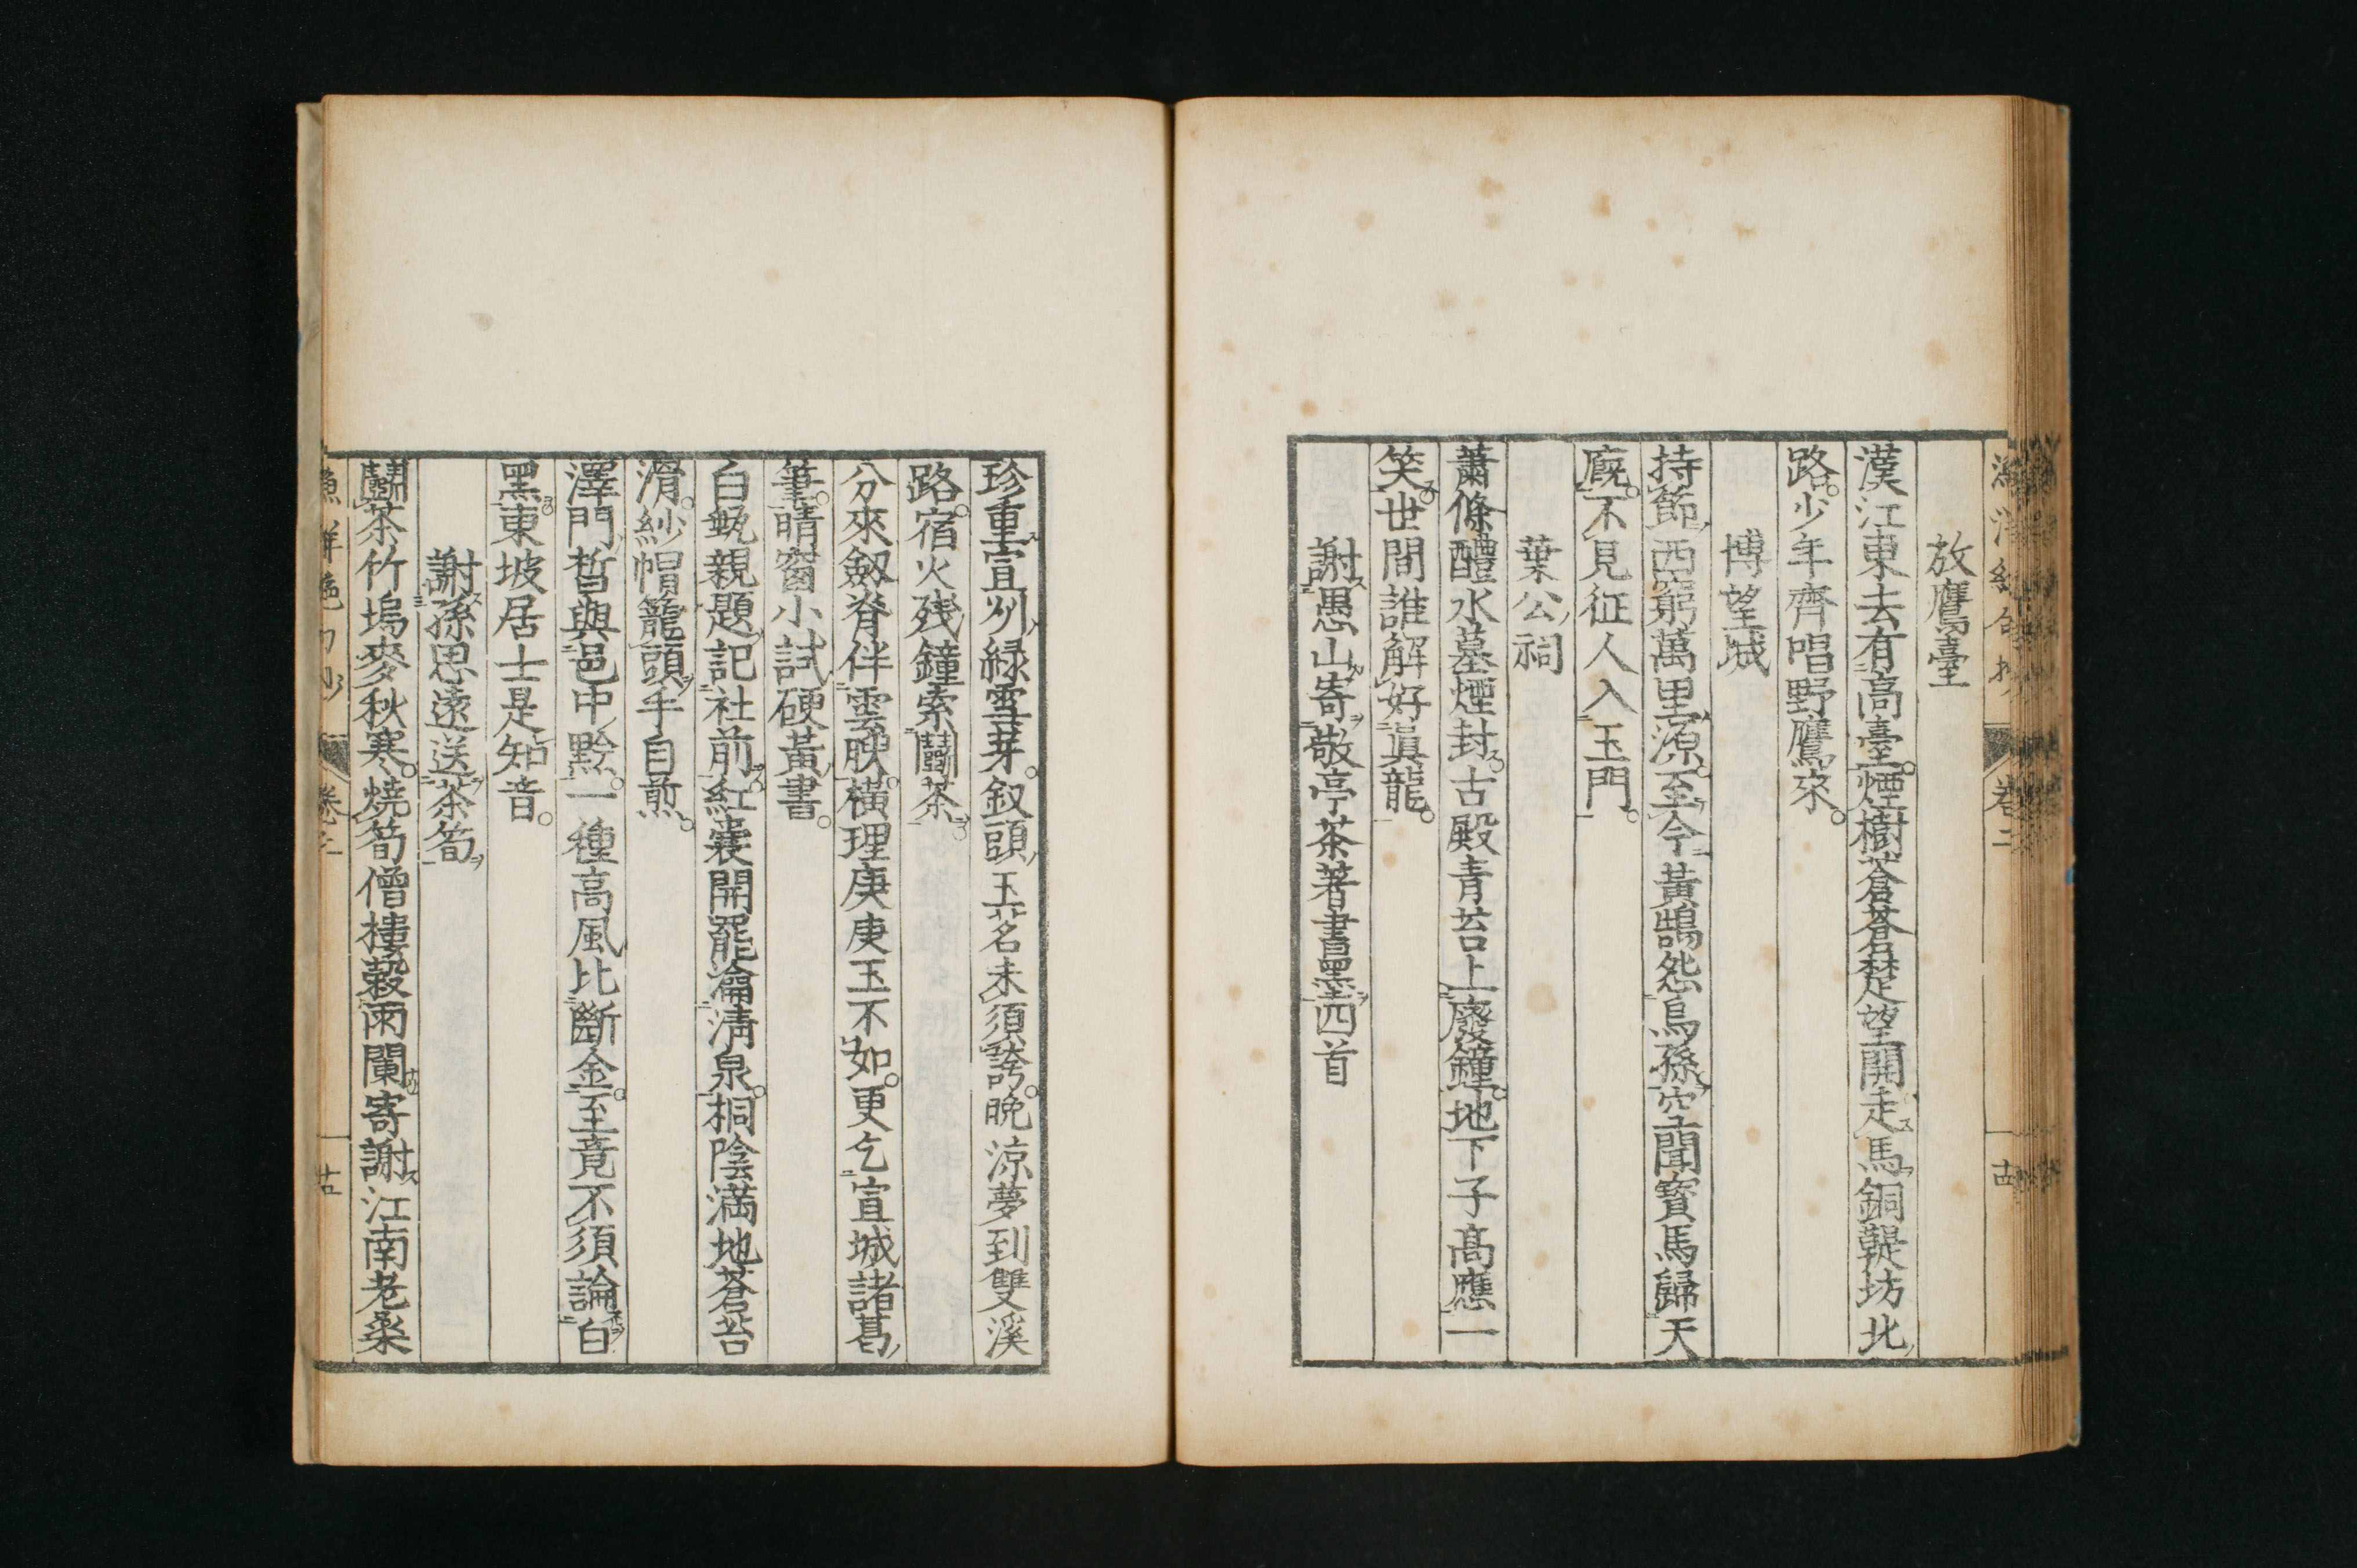 放鷹臺
漢江東去有高臺煙樹蒼蒼楚望開走馬銅鞮坊北
路少年齊唱野鷹來
博望城
持節西窮萬里源至今黃鵠怨烏孫空聞寶馬歸天
廐不見征人入玉門
葉公祠
蕭條醴水墓煙封古殿青苔上廢鐘地下子高應一
笑世間誰解好眞龍
謝愚山寄敬亭茶著書墨四首
珍重宣州緑雪芽釵頭玉茗未須誇晩涼夢到雙溪
路宿火残鐘索鬭茶
分來劔脊伴雲腴橫理庚庚玉不如更乞宣城諸葛
筆晴窗小試硬黃書
白甀親題記社前紅囊開罷瀹淸泉桐陰満地蒼苔
滑紗帽籠頭手自煎
澤門晳與邑中黔一種高風比斷金至竟不須論白
黑東坡居士是知音
謝孫思遠送茶筍
鬭茶竹塢麥秋寒燒筍僧樓穀雨闌寄謝江南老桑
卷二